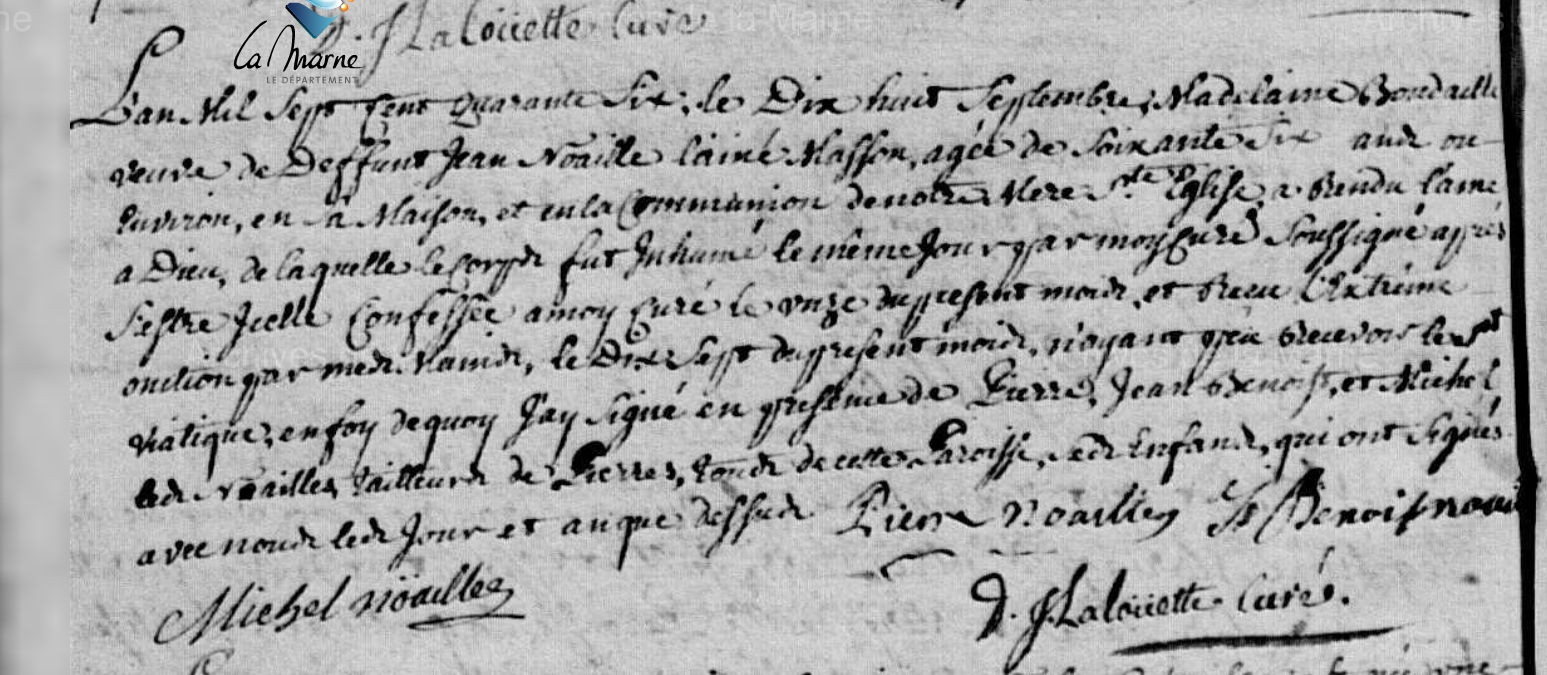 D. J Laloüette Curé
La Marne
LE DÉPARTEMENT
L'an Mil Sept Cent Quarante Six, le Dix huit Septembre, Madelaine Bondaille
veuve de Deffunt Jean Noaille l'ainé Masson, agée de Soixante Six ans ou
Environ, en sa Maison, et en la Communion de notre Mere Ste Eglise, a Rendu l'ame
a Dieu, de laquelle le Corps fut Inhumé le même Jour par moy Curé Soussigné apprés
S'estre Jcelle Confessée a moy Curé le unze du present mois, et Receu l'Extréme
onction par mes Mains, le Dix Sept du present mois, n'ayant peu Recevoir le St
viatique, en foy de quoy J'ay Signé en presence de Pierre, Jean Benoist, et Michel
les Noailles tailleurs de Pierres, tous de cette Paroisse, ses Enfans, qui ont Signés
avec nous les Jour et an que dessus Pierre Noailles J Benoist
Michel noailles
D. J. Laloüette Curé.